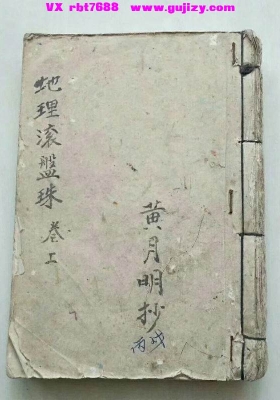 VX rbt7688 www.gujizy.com
地理滚盤珠 卷上
黄月明抄
丙戌